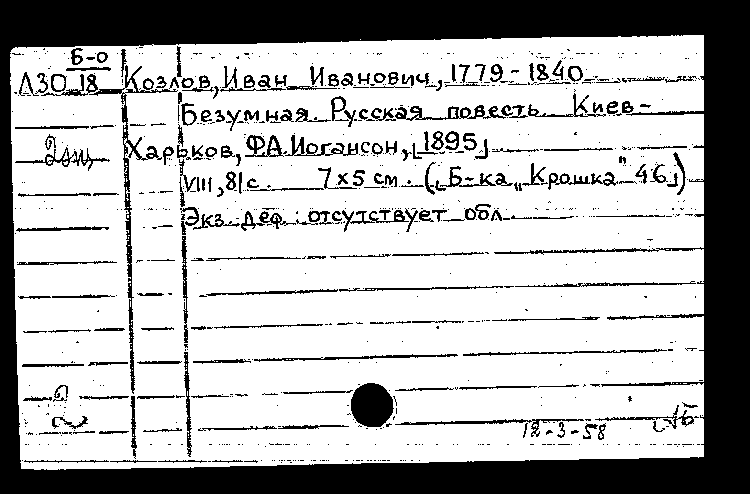 Б-о
Л30 18 Козлов, Иван Иванович, 1779-1840
Безумная. Русская повесть. Киев-
2 эк. Харьков, Ф.А. Иогансон, [1895]
VIII, 81 с. 7х5 см. ([Б-ка „Крошка" 46])
Экз. деф.: отсутствует обл.
2
12-3-58